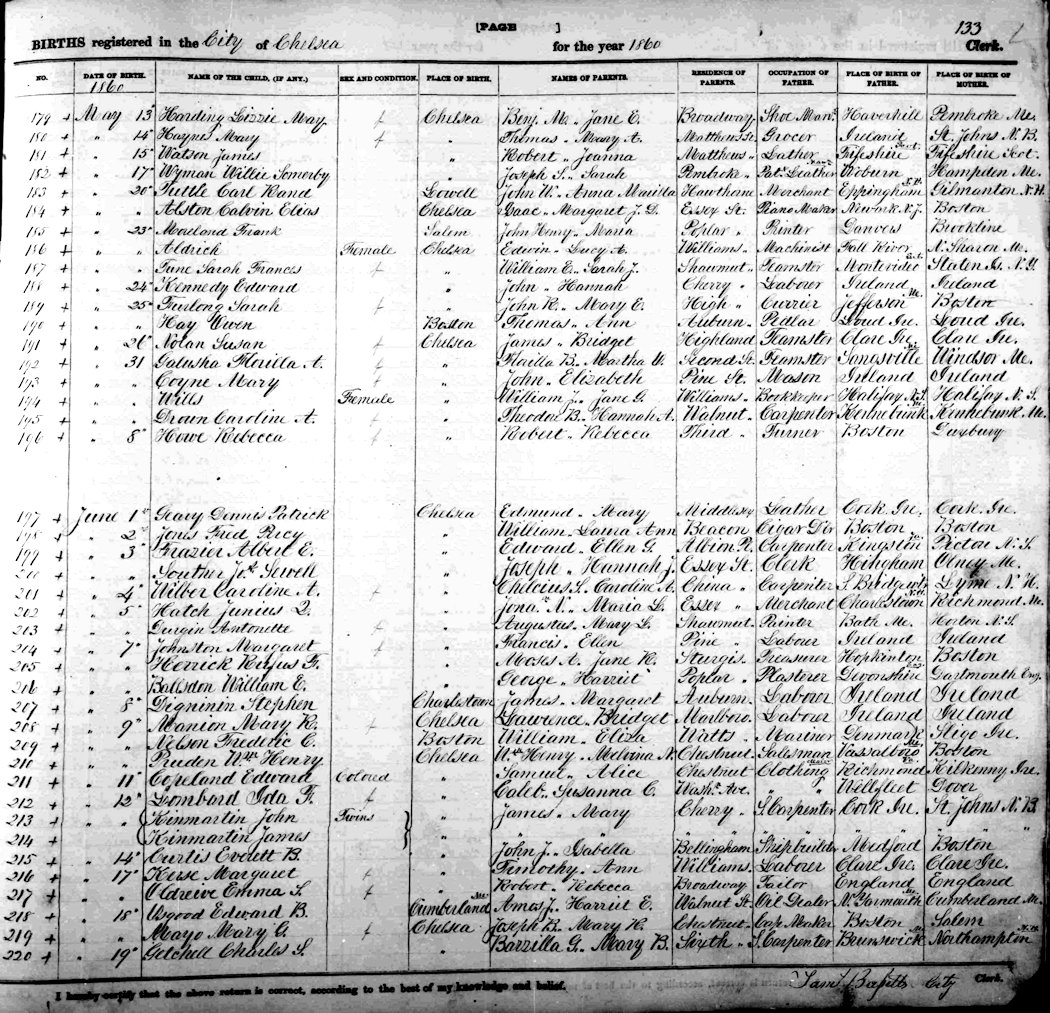 [PAGE ] 133
BIRTHS registered in the City of Chelsea for the year 1860 Clerk.
NO. DATE OF BIRTH. NAME OF THE CHILD, (IF ANY.) SEX AND CONDITION. PLACE OF BIRTH. NAMES OF PARENTS. RESIDENCE OF PARENTS. OCCUPATION OF FATHER. PLACE OF BIRTH OF FATHER. PLACE OF BIRTH OF MOTHER.
1860
179 + May 13 Harding Lizzie May f Chelsea Benj. M. " Jane E. Broadway Shoe Man. Haverhill Pembroke Me.
180 + " 14 Haynes Mary f " Thomas " Mary A. Matthews St. Grocer Ireland St. Johns N.B.
181 + " 15 Watson James " Robert " Joanna Matthews " Lather Fifeshire Scot. Fifeshire Scot.
182 + " 17 Wyman Willie Somerby " Joseph S. " Sarah Pembroke " Pat. Leather Woburn Hampden Me.
183 + " 20 Tuttle Carl Rand Lowell John W. " Anna Hawthorne Merchant Eppingham N.H. Gilmanton N.H.
184 + " " Alston Calvin Elias Chelsea Isaac " Margaret J. D. Essex St. Piano Maker Newark N.J. Boston
185 + " 23 Moreland Frank Salem John Henry " Maria Poplar " Printer Danvers Brookline
186 + " " Aldrich Female Chelsea Edwin " Lucy A. Williams " Machinist Fall River N. Sharon Me.
187 + " " Tune Sarah Frances f " William E. " Sarah J. Shawmut " Teamster Montevideo Staten Is. N.Y.
188 + " 24 Kennedy Edward " John " Hannah Cherry " Laborer Ireland Ireland
189 + " 25 Furlong Sarah f " John R. " Mary E. High " Currier Jefferson Me. Boston
190 + " " Hay Owen Boston Thomas " Ann Auburn " Pedlar Loud Ire. Loud Ire.
191 + " 26 Nolan Susan f Chelsea James " Bridget Highland Teamster Clare Ire. Clare Ire.
192 + " 31 Galusha Florilla A. f " Florilla B. " Martha W. Second St. Teamster Jonesville Windsor Me.
193 + " " Coyne Mary f " John " Elizabeth Pine St. Mason Ireland Ireland
194 + " " Wills Female " William J. " Jane G. Williams " Bookkeeper Halifax N.S. Halifax N.S.
195 + " " Drown Caroline A. f " Theodore B. " Hannah A. Walnut " Carpenter Kennebunk Me. Kennebunk Me.
196 + " 8 Howe Rebecca f " Robert " Rebecca Third " Turner Boston Duxbury
197 + June 1 Geary Dennis Patrick Chelsea Edmund " Mary Middlesex Leather Cork Ire. Cork Ire.
198 + " 2 Jones Fred Percy " William " Laura Ann Beacon Cigar Boston Boston
199 + " 3 Frazier Albert E. " Edward " Ellen G. Albion Pl. Carpenter Kingston Pictou N.S.
200 + " " Souther Jos. Sewell " Joseph " Hannah J. Essex St. Clerk Hingham Olney Me.
201 + " 4 Wilber Caroline A. f " Chelcius S. " Caroline A. China " Carpenter S. Bridgewtr Lyme N.H.
202 + " 5 Hatch Junius L. " Jona. N. " Maria L. Essex " Merchant Charlestown N.H. Richmond Me.
203 + " " Durgin Antonette f " Augustus " Mary L. Shawmut " Painter Bath Me. Horton N.S.
204 + " 7 Johnston Margaret f " Francis " Ellen Pine " Laborer Ireland Ireland
205 + " " Herrick Rufus F. " Moses A. " Jane R. Sturgis " Treasurer Hopkinton Boston
206 + " " Ballsdon William E. " George " Harriet Poplar " Plasterer Devonshire Eng. Dartmouth Eng.
207 + " 8 Digninin Stephen Charlestown James " Margaret Auburn " Laborer Ireland Ireland
208 + " 9 Manion Mary R. f Chelsea Lawrence " Bridget Marlboro " Laborer Ireland Ireland
209 + " " Nelson Frederic C. Boston William " Eliza Watts " Mariner Denmark Sligo Ire.
210 + " " Pruden Wm Henry Chelsea Wm Henry " Melvina N. Chestnut " Salesman Vassalboro Me. Boston
211 + " 11 Copeland Edward Colored " Samuel " Alice Chestnut " Clothing Richmond Va. Kilkenny Ire.
212 + " 12 Lombard Ida F. f " Caleb " Susanna C. Wash. Ave. " Wellfleet Dover
213 + " " Kinmartin John Twins " James " Mary Cherry " S. Carpenter Cork Ire. St. Johns N.B.
214 + Kinmartin James " " " " " " "
215 + " 14 Curtis Everett B. " John J. " Isabella Bellingham Shipbuilder Medford Boston
216 + " 17 Kerse Margaret f " Timothy " Ann Williams " Laborer Clare Ire. Clare Ire.
217 + " " Aldreive Emma S. f " Robert " Rebecca Broadway Tailor England England
218 + " 18 Osgood Edward B. Cumberland Me. Amos J. " Harriet E. Walnut St. Oil Dealer N. Yarmouth Me. Cumberland Me.
219 + " " Mayo Mary G. f Chelsea Joseph B. " Mary H. Chestnut " Cap Maker Boston Salem
220 + " 19 Getchell Charles S. " Barzilla G. " Mary B. Sixth " S. Carpenter Brunswick Me. Northampton N.H.
I hereby certify that the above return is correct, according to the best of my knowledge and belief. City Clerk.